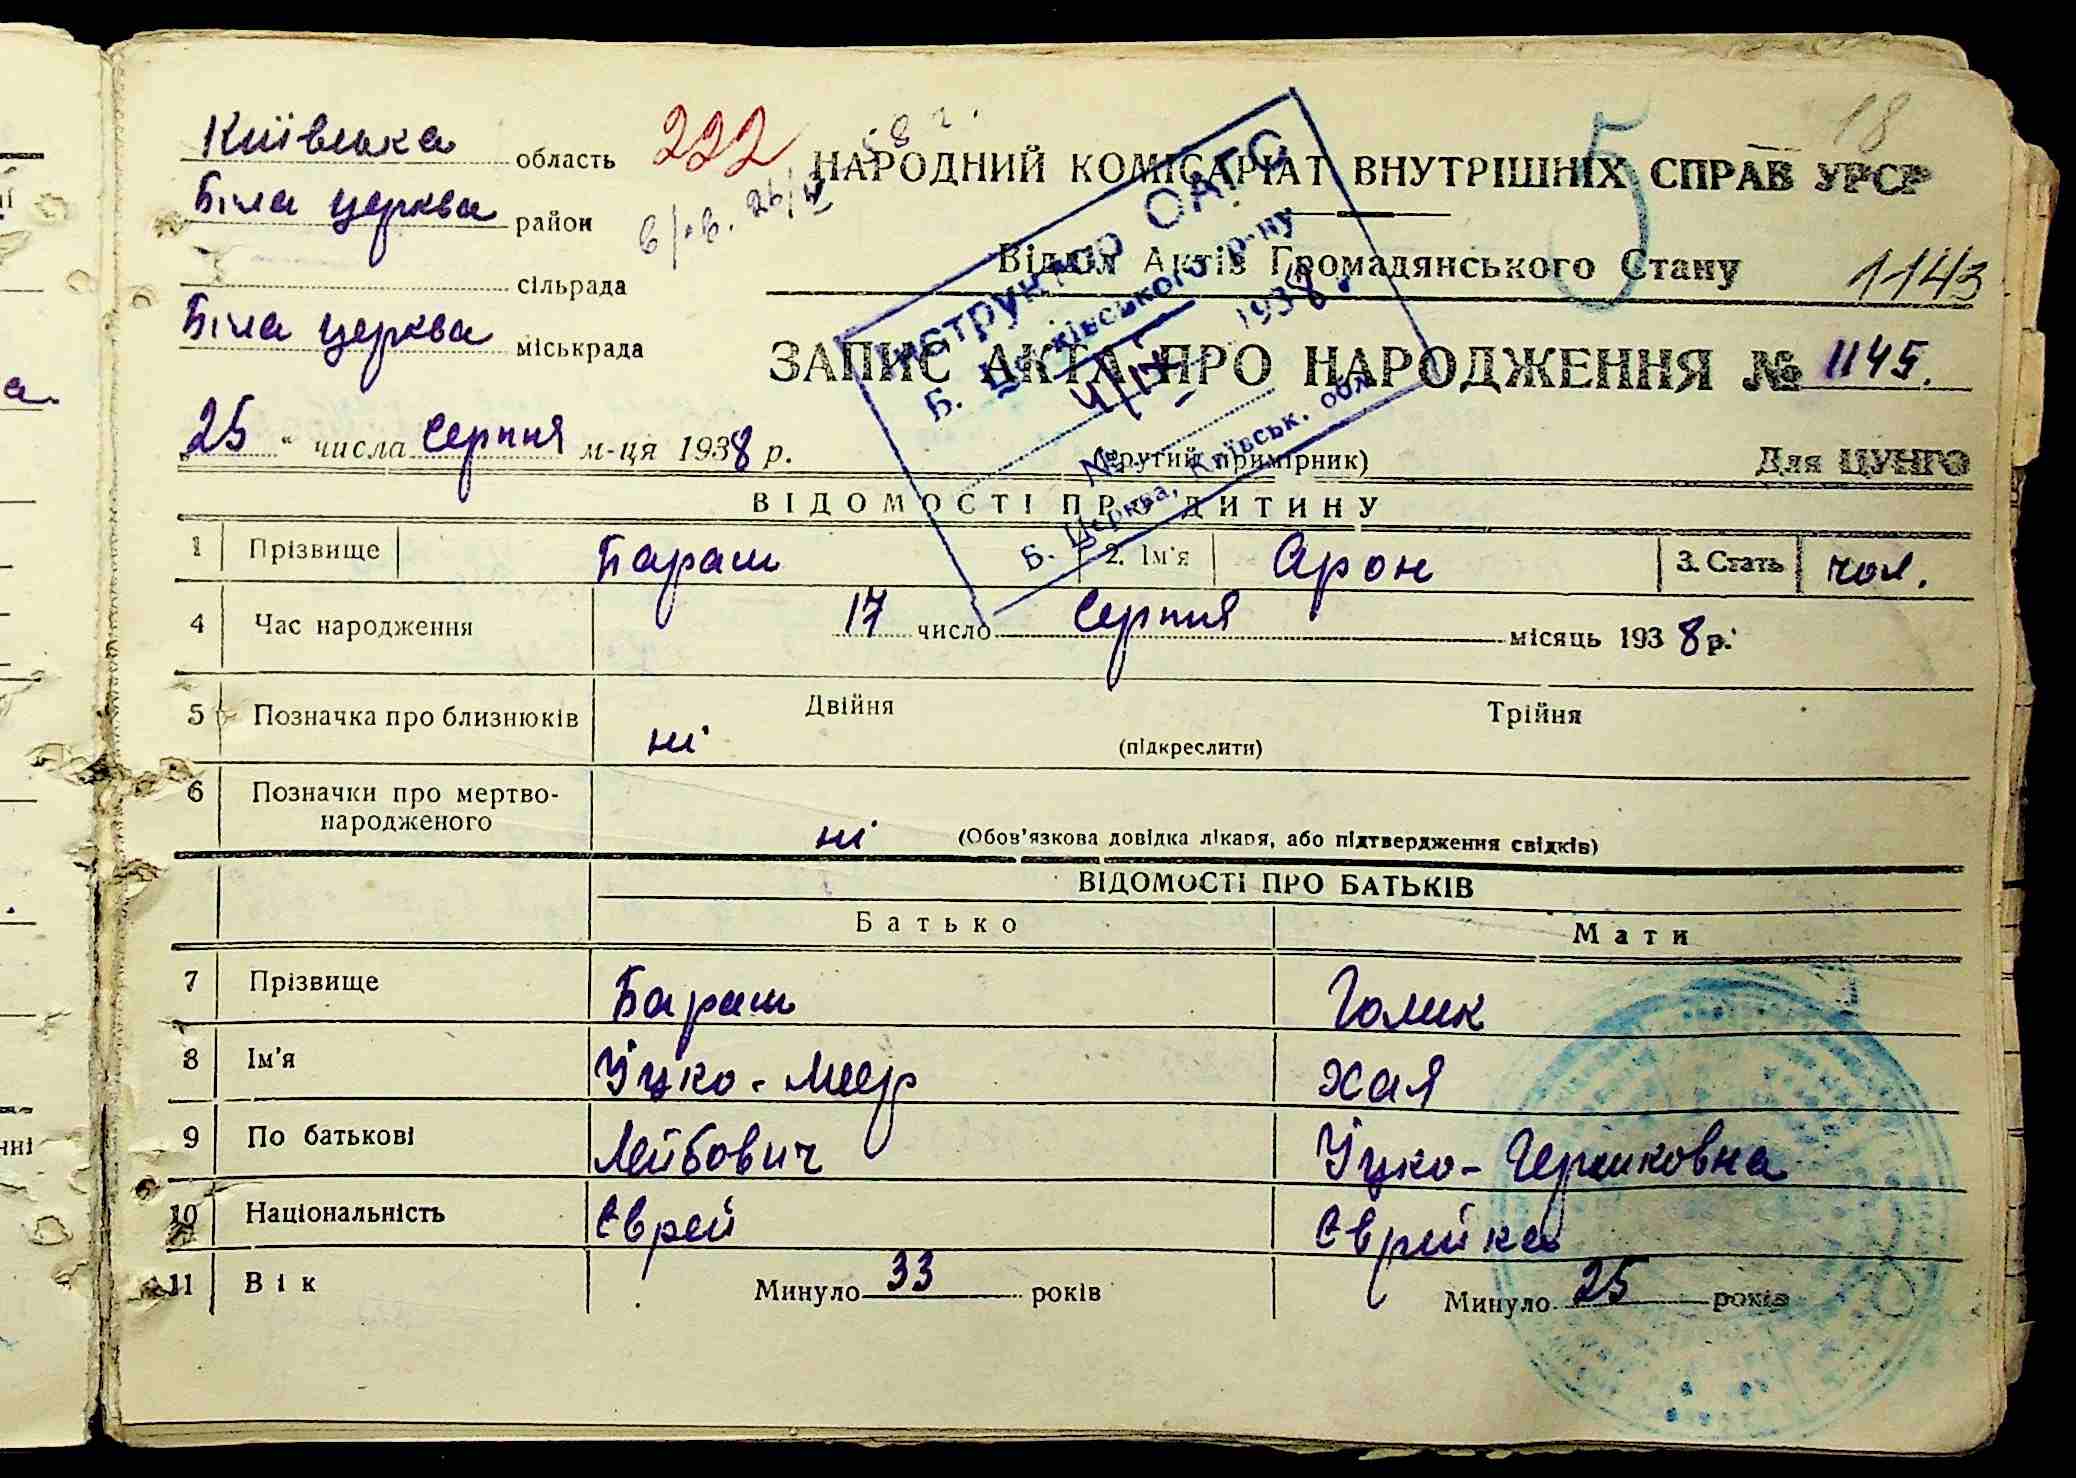 18
Київська область 222 58 г.
НАРОДНИЙ КОМІСАРІАТ ВНУТРІШНІХ СПРАВ УРСР
Біла церква район
5
Відділ Актів Громадянського Стану 1143
сільрада
Біла церква міськрада
ЗАПИС АКТА ПРО НАРОДЖЕННЯ № 1145.
25 " числа Серпня м-ця 1938 р.
(Другий примірник) Для ЦУНГО
Інструктор ОАГС
Б. Церківського р-ну
4/IX 1938
№
Б. Церква, Київськ. обл.
ВІДОМОСТІ ПРО ДИТИНУ
1 Прізвище Бараш 2. Ім'я Арон 3. Стать чол.
4 Час народження 17 число Серпня місяць 1938 р.
5 Позначка про близнюків ні Двійня Трійня
(підкреслити)
6 Позначки про мертво-
народженого ні (Обов'язкова довідка лікаря, або підтвердження свідків)
ВІДОМОСТІ ПРО БАТЬКІВ
Батько Мати
7 Прізвище Бараш Голик
8 Ім'я Іцко-Меер Хая
9 По батькові Лейбович Іцко-Гершковна
10 Національність Єврей Єврейка
11 Вік Минуло 33 років Минуло 25 років